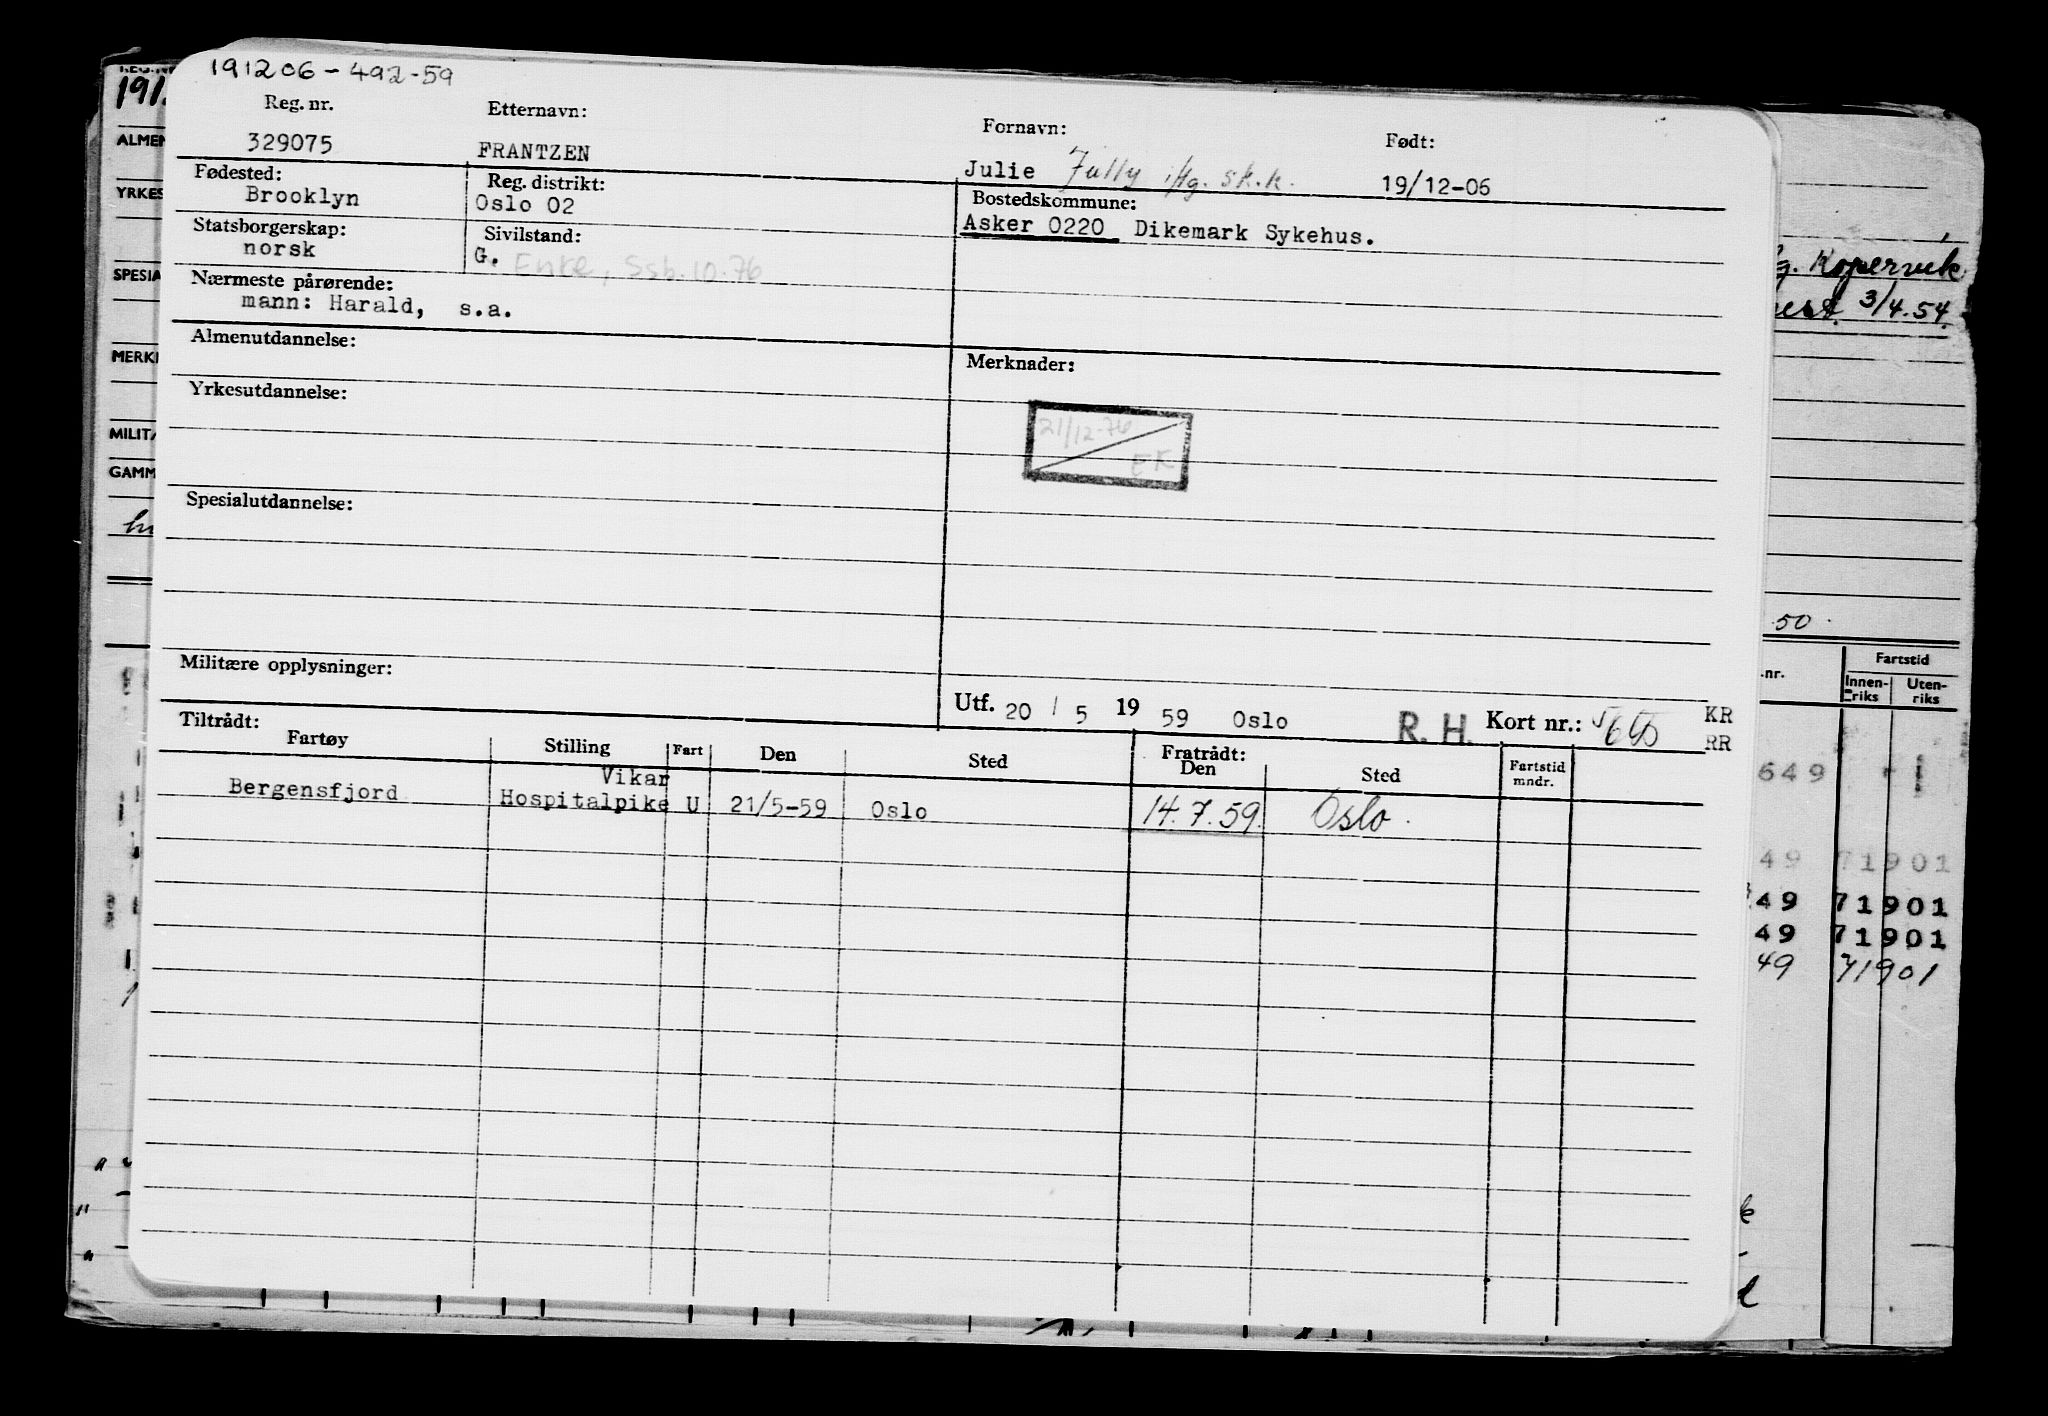 191206-492-59
Reg. nr. Etternavn: Fornavn: Født:
329075 FRANTZEN Julie Jully iflg. sk.k. 19/12-06
Fødested: Reg. distrikt: Bostedskommune:
Brooklyn Oslo 02 Asker 0220 Dikemark Sykehus.
Statsborgerskap: Sivilstand:
norsk G. Enke, Ssb. 10.76
Nærmeste pårørende:
mann: Harald, s.a.
Almenutdannelse: Merknader:
Yrkesutdannelse:
21/12-76
EK
Spesialutdannelse:
Militære opplysninger:
Utf. 20 / 5 19 59 Oslo R. H. Kort nr.: KR
RR
Tiltrådt: Fratrådt:
Fartøy Stilling Fart Den Sted Den Sted Fartstid
mndr.
Vikar
Bergensfjord Hospitalpike U 21/5-59 Oslo 14.7.59. Oslo.
191
ALMEN
YRKES
SPESIA
MERK
MILIT
GAMM
g. Kopervik
3/4.54.
50
.nr. Fartstid
Innen-riks Uten-riks
649
49 71901
49 71901
49 71901
49 71901